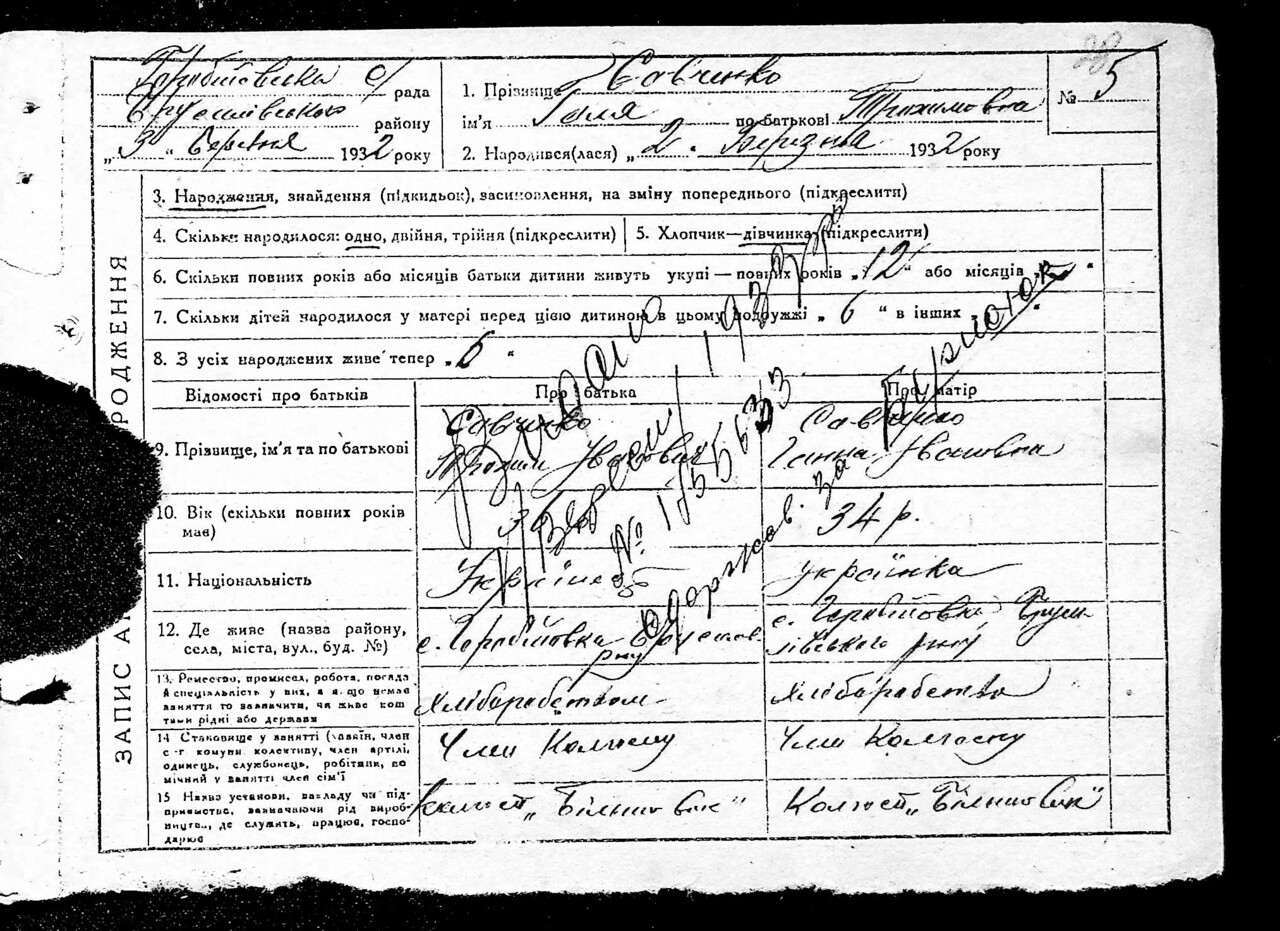 рада
району
„3“ березня 1932 року
1. Прізвище Савченко
ім'я Галя по батькові Трохимовна
2. Народився(лася) „2“ Березня 1932 року
№ 5
28
ЗАПИС РОДЖЕННЯ
3. Народження, знайдення (підкидьок), засиновлення, на зміну попереднього (підкреслити)
4. Скільки народилося: одно, двійня, трійня (підкреслити)
5. Хлопчик—дівчинка (підкреслити)
6. Скільки повних років або місяців батьки дитини живуть укупі — повних років „12“ або місяців „ “
7. Скільки дітей народилося у матері перед цією дитиною в цьому подружжі „6“ в інших „
8. З усіх народжених живе тепер „6“
Відомості про батьків
Про батька
Про матір
9. Прізвище, ім'я та по батькові
Савченко
Трохим Іванович
Савченко
Ганна Івановна
10. Вік (скільки повних років має)
34 р.
11. Національність
Українець
українка
12. Де живе (назва району, села, міста, вул., буд. №)
с.
району
с.
13. Ремество, промисел, робота, посада й спеціальність у них, а якщо немає заняття то зазначити, чи живе коштами рідні або держави
Хліборобством
Хліборобство
14 Становище у занятті (хазяїн, член с-г комуни, колективу, член артілі, одинець, службовець, робітник, помічний у занятті член сім'ї
Член Колгоспу
Член Колгоспу
15 Назва установи, закладу чи підприємства, зазначаючи рід виробництва, де служить, працює, господарює
Колгосп „Більшовик“
Колгосп „Більшовик“
№ 1/555633